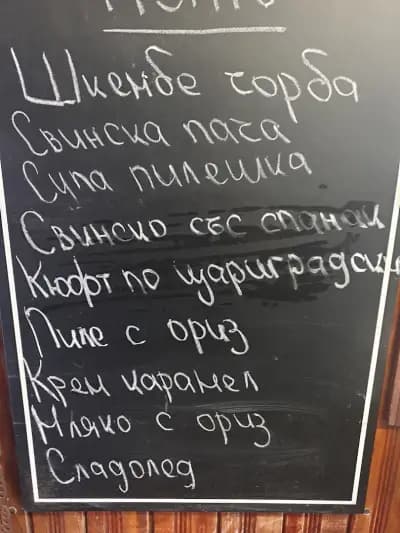 Меню
Шкембе чорба
Свинска пача
Супа пилешка
Свинско със спанак
Кюфт по цариградски
Пиле с ориз
Крем карамел
Мляко с ориз
Сладолед